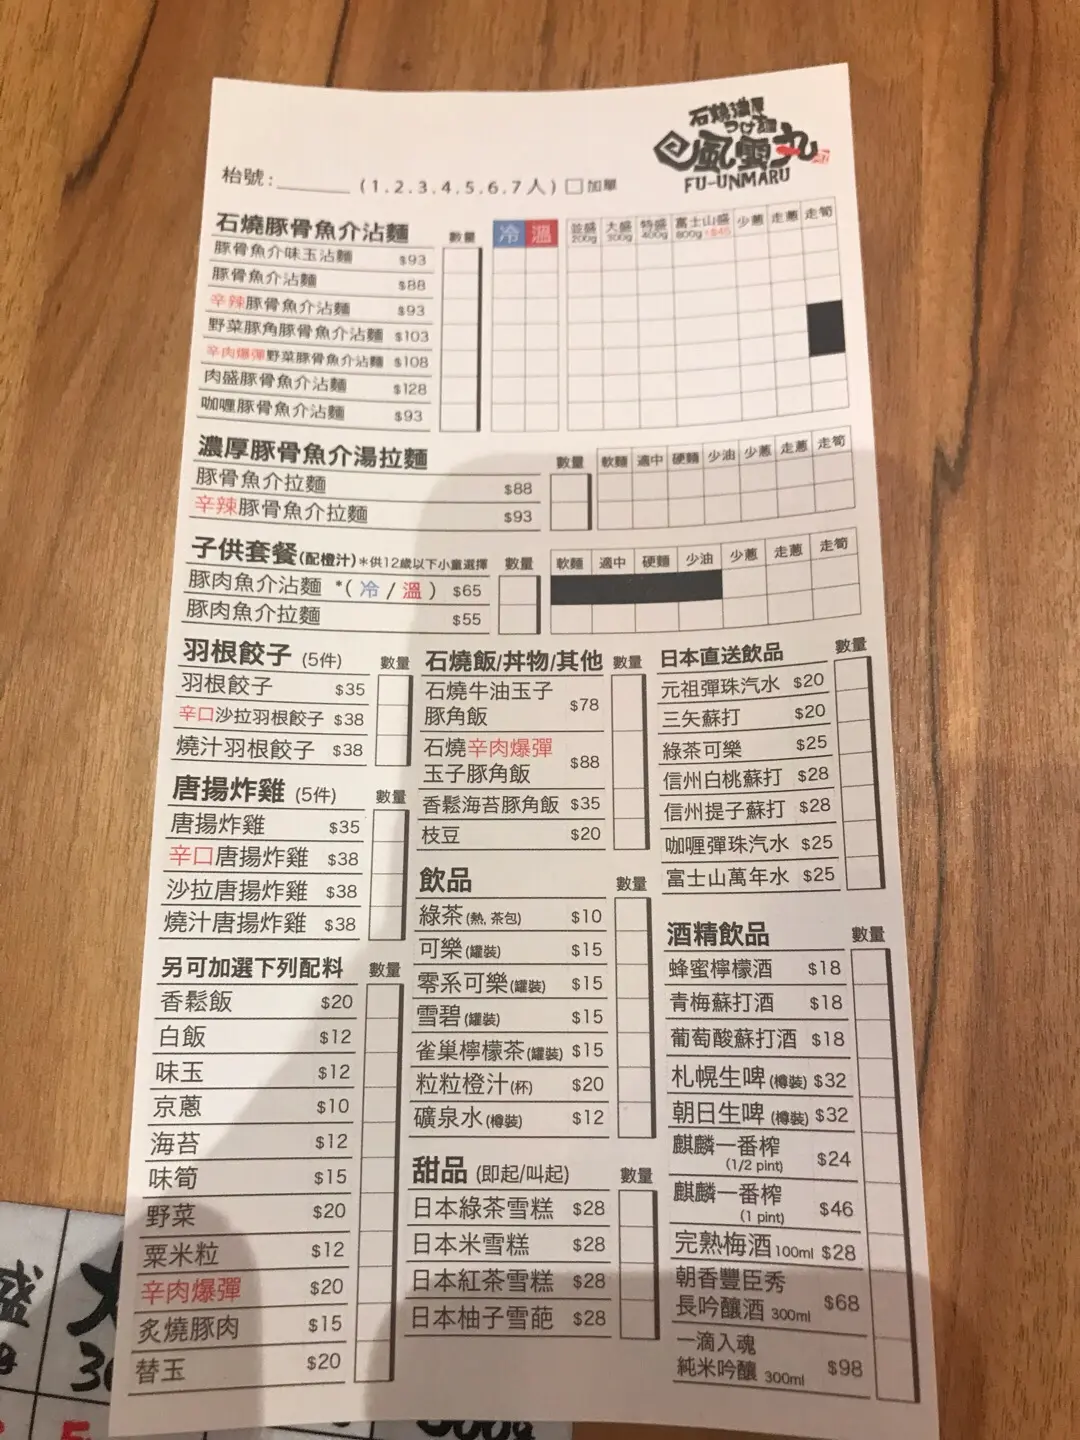 石燒濃厚
つけ麺
風雲丸
FU-UNMARU
枱號:_______ (1.2.3.4.5.6.7人) □加單
石燒豚骨魚介沾麵 數量 冷 溫 並盛 200g 大盛 300g 特盛 400g 富士山盛 800g +$45 少蔥 走蔥 走筍
豚骨魚介味玉沾麵 $93
豚骨魚介沾麵 $88
辛辣豚骨魚介沾麵 $93
野菜豚角豚骨魚介沾麵 $103
辛肉爆彈野菜豚骨魚介沾麵 $108
肉盛豚骨魚介沾麵 $128
咖喱豚骨魚介沾麵 $93
濃厚豚骨魚介湯拉麵 數量 軟麵 適中 硬麵 少油 少蔥 走蔥 走筍
豚骨魚介拉麵 $88
辛辣豚骨魚介拉麵 $93
子供套餐(配橙汁)*供12歲以下小童選擇 數量 軟麵 適中 硬麵 少油 少蔥 走蔥 走筍
豚肉魚介沾麵 *(冷/溫) $65
豚肉魚介拉麵 $55
羽根餃子 (5件) 數量
羽根餃子 $35
辛口沙拉羽根餃子 $38
燒汁羽根餃子 $38
唐揚炸雞 (5件) 數量
唐揚炸雞 $35
辛口唐揚炸雞 $38
沙拉唐揚炸雞 $38
燒汁唐揚炸雞 $38
另可加選下列配料 數量
香鬆飯 $20
白飯 $12
味玉 $12
京蔥 $10
海苔 $12
味筍 $15
野菜 $20
粟米粒 $12
辛肉爆彈 $20
炙燒豚肉 $15
替玉 $20
石燒飯/丼物/其他 數量
石燒牛油玉子
豚角飯 $78
石燒辛肉爆彈
玉子豚角飯 $88
香鬆海苔豚角飯 $35
枝豆 $20
飲品 數量
綠茶(熱, 茶包) $10
可樂(罐裝) $15
零系可樂(罐裝) $15
雪碧(罐裝) $15
雀巢檸檬茶(罐裝) $15
粒粒橙汁(杯) $20
礦泉水(樽裝) $12
甜品 (即起/叫起) 數量
日本綠茶雪糕 $28
日本米雪糕 $28
日本紅茶雪糕 $28
日本柚子雪葩 $28
日本直送飲品 數量
元祖彈珠汽水 $20
三矢蘇打 $20
綠茶可樂 $25
信州白桃蘇打 $28
信州提子蘇打 $28
咖喱彈珠汽水 $25
富士山萬年水 $25
酒精飲品 數量
蜂蜜檸檬酒 $18
青梅蘇打酒 $18
葡萄酸蘇打酒 $18
札幌生啤(樽裝) $32
朝日生啤(樽裝) $32
麒麟一番榨
(1/2 pint) $24
麒麟一番榨
(1 pint) $46
完熟梅酒100ml $28
朝香豐臣秀
長吟釀酒 300ml $68
一滴入魂
純米吟釀 300ml $98
盛